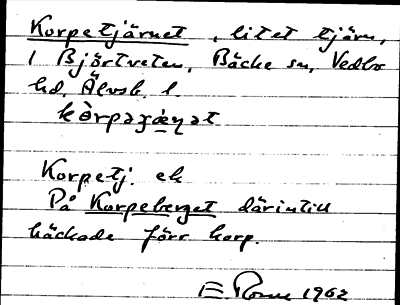 Korpetjärnet, litet tjärn,
i Björtveten, Bäcke sn, Vedbo
hd, Älvsb. l.
Korpetj. ek
På Korpeberget därintill
häckade förr korp.
1962